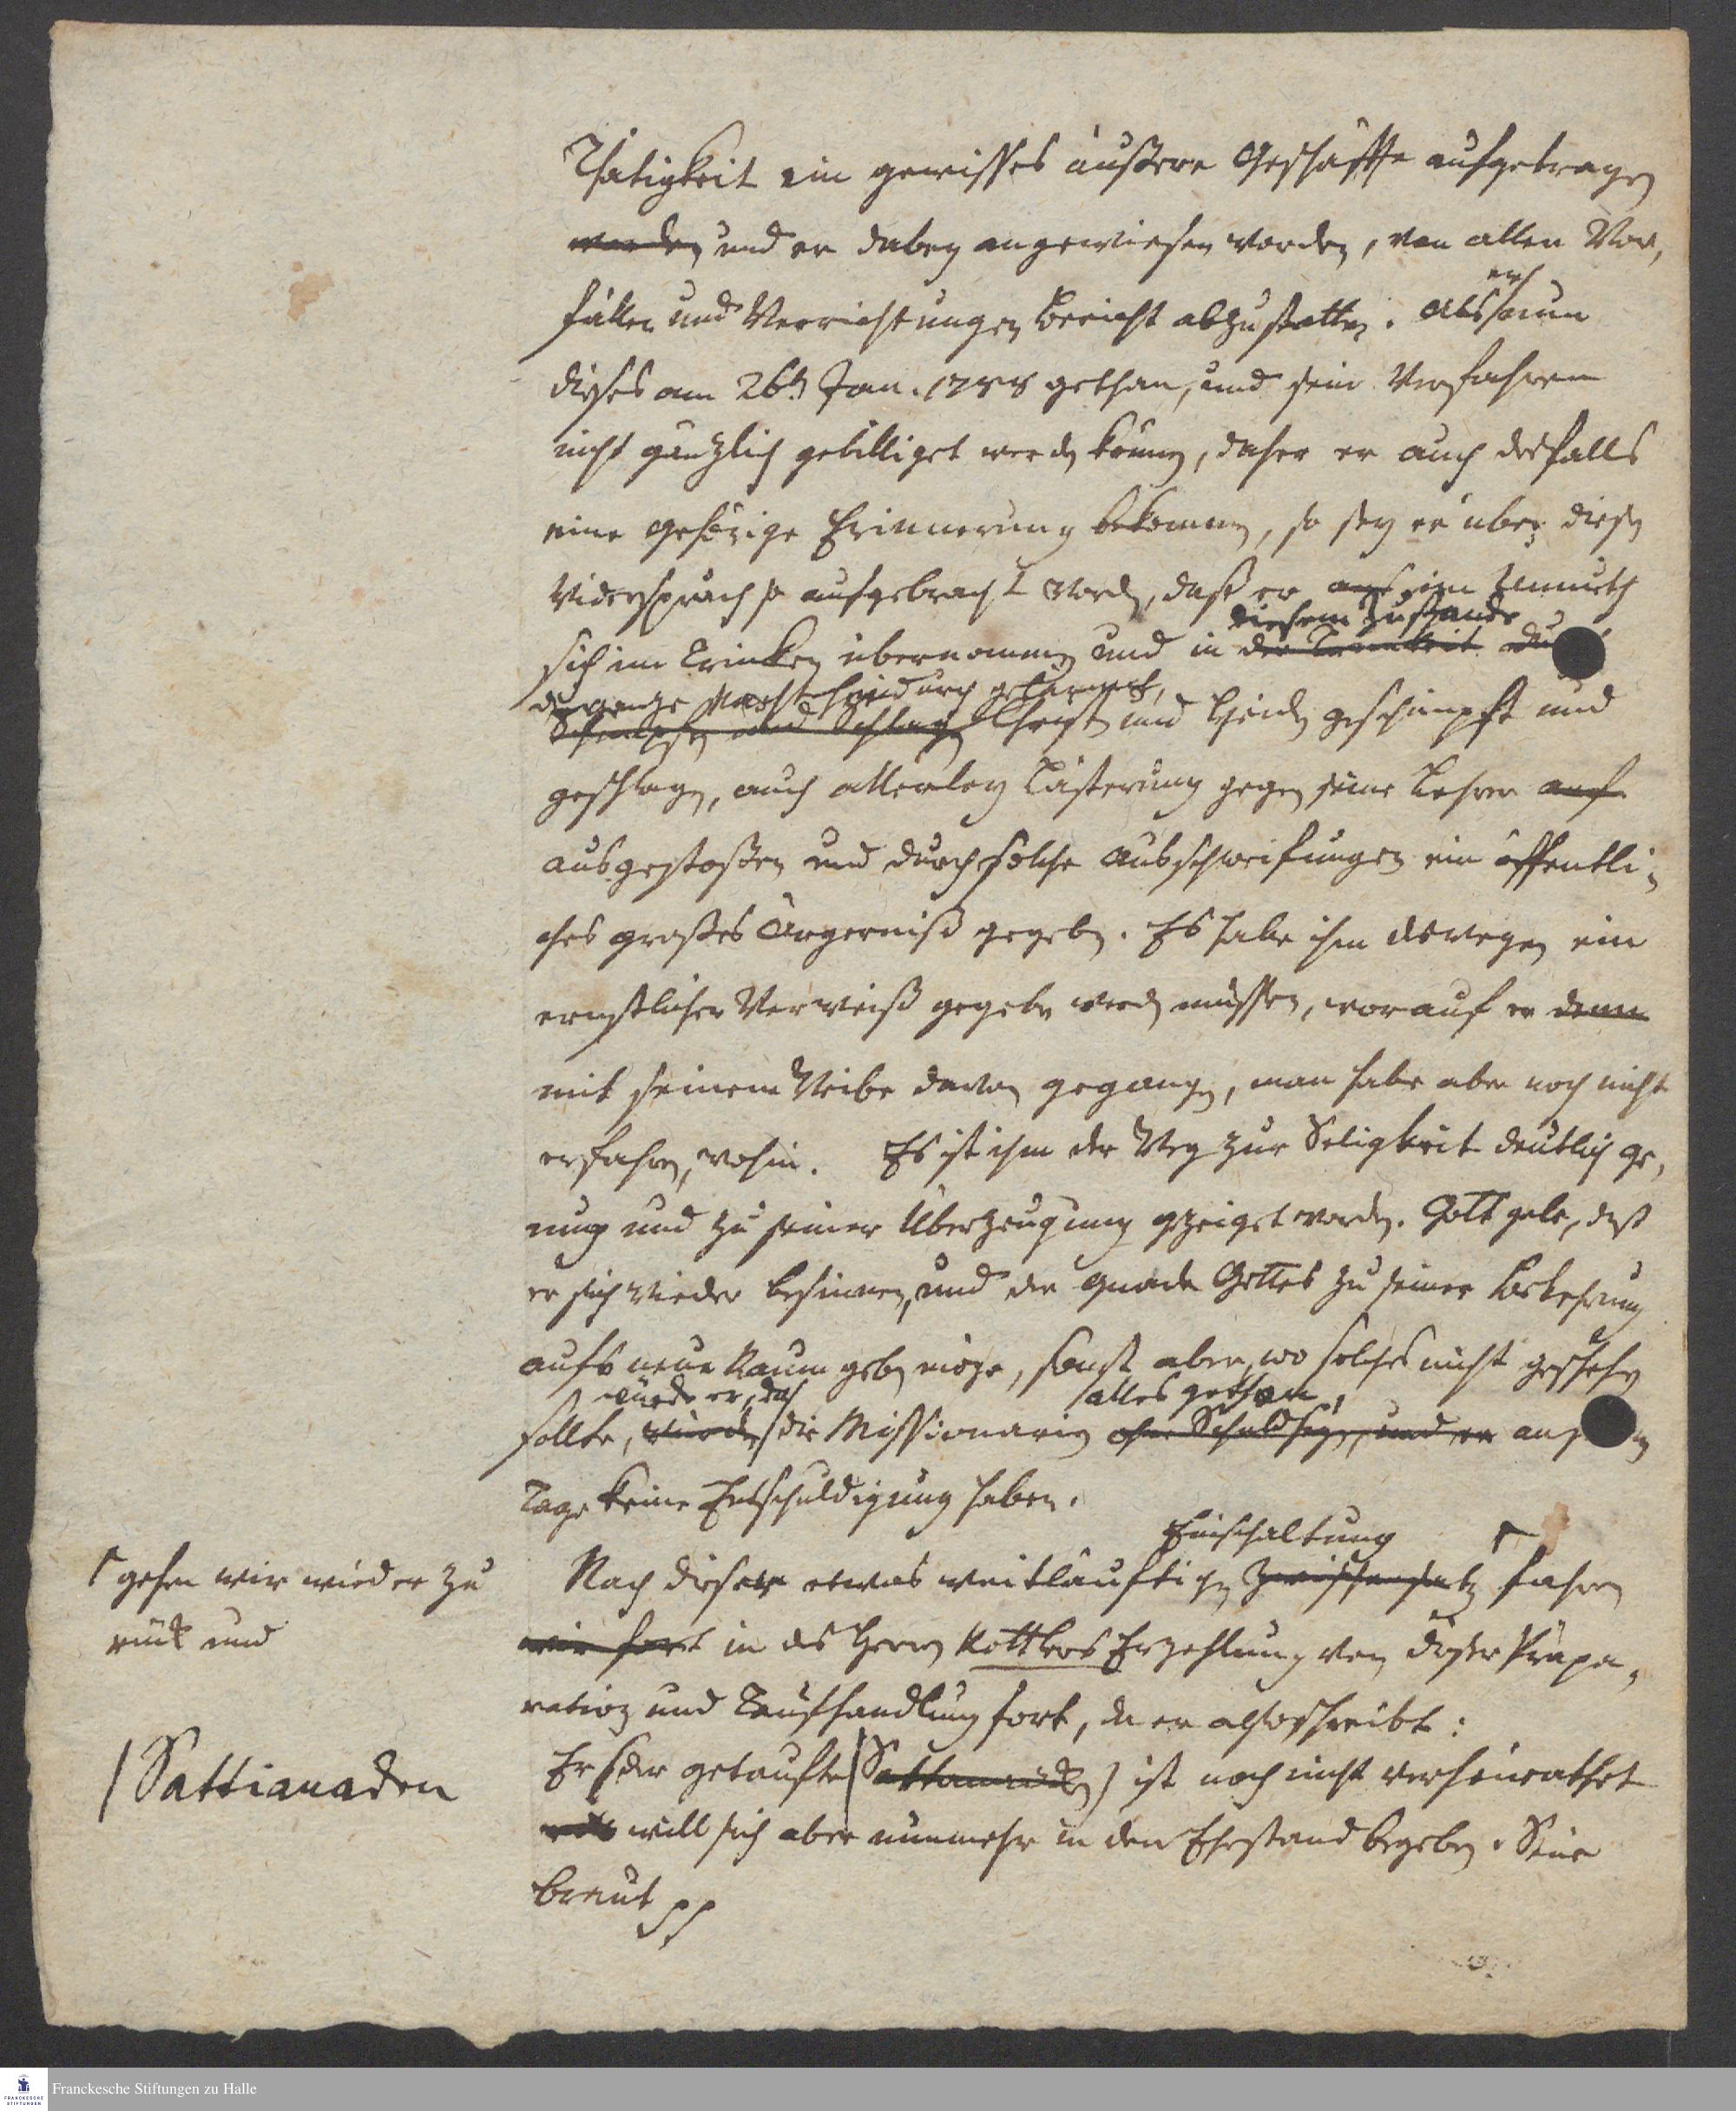 Thätigkeit ein gewisses äußere Geschäffte aufgetragen
worden und er dabey angewiesen worden, von allen Vor-
fällen und Verrichtungen Bericht abzustatten. Als er nun
dieses am 26ten Jan. 1788 gethan, und sein Verfahren
nicht gänzlich gebilliget werden können, daher er auch desfalls
eine gehörige Erinnerung bekommen, so sey er über diesen
Widerspruch so aufgebracht worden, daß er aus Unmuth
sich im Trinken übernommen und in der Trunkenheit
diesem Zustande
die ganze Nacht hindurch gelärmet,
Schimpfen und Schlagen Christen und Heiden geschimpft und
geschlagen, auch allerley Lästerung gegen seine Lehrer auf
ausgestoßen und durch solche Ausschweifungen ein öffentli-
ches großes Ärgerniß gegeben. Es habe ihm deswegen ein
ernstlicher Verweiß gegeben werden müssen, worauf er denn
mit seinem Weibe davon gegangen, man habe aber noch nicht
erfahren, wohin. Es ist ihm der Weg zur Seligkeit deutlich ge-
nug und zu seiner Überzeugung gezeiget worden. Gott gebe, daß
er sich wieder besinnen, und der Gnade Gottes zu seiner Bekehrung
aufs neue Raum geben möge, sonst aber, wo solches nicht geschehen
würde er, da alles gethan,
sollte, würden die Missionarien ohne Schuld seyn, und er an
Tage keine Entschuldigung haben.
Einschaltung
Nach dieser etwas weitläuftigen Zwischensatz fahren
gehen wir wieder zu
rück und
wir fort in des Herrn Kottlers Erzehlung von dieser Präpa-
ration und Taufhandlung fort, da er also schreibt:
Er (der getaufte Sattianaden) ist noch nicht verheirathet
Sattianaden
will sich aber nunmehr in den Ehestand begeben. Seine
Braut pp
Franckesche Stiftungen zu Halle
FRANCKESCHE
STIFTUNGEN